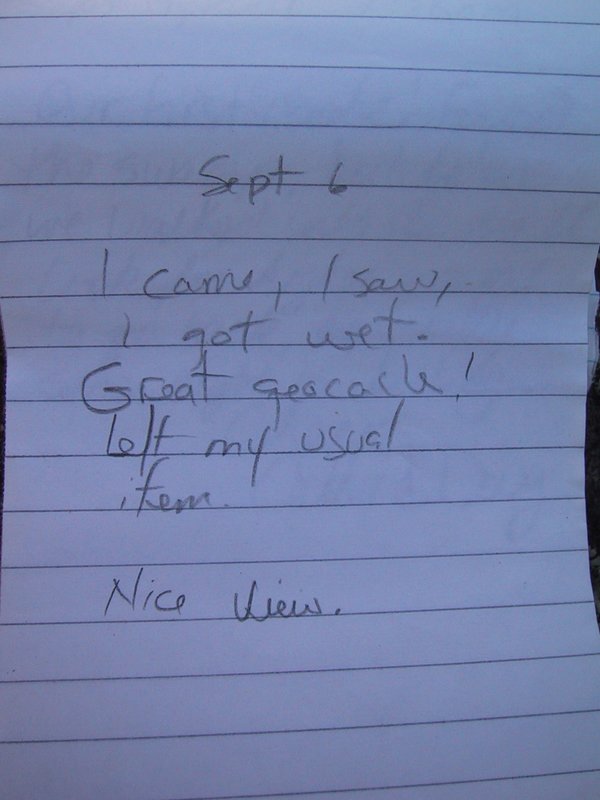 Sept 6
I came, I saw,
I got wet.
Great geocache!
Left my usual
item.
Nice View.